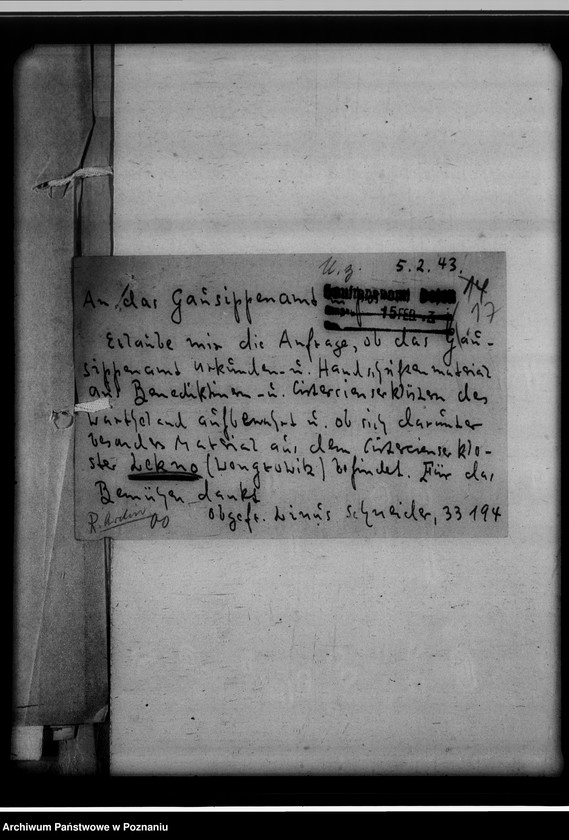 U. z. 5.2.43.
An das Gausippenamt
15 FEB
14
17
Erlaube mir die Anfrage, ob das Gau-
sippenamt Urkunden- u. Handschriftenmaterial
aus Benediktiner- u. Cistercienserklöstern des
Wartheland aufbewahrt u. ob sich darunter
besonders Material aus dem Cistercienserklo-
ster Lekno (Wongrowitz) befindet. Für das
Bemühen dankt
Obgefr. Linus Schneider, 33 194
Archiwum Państwowe w Poznaniu